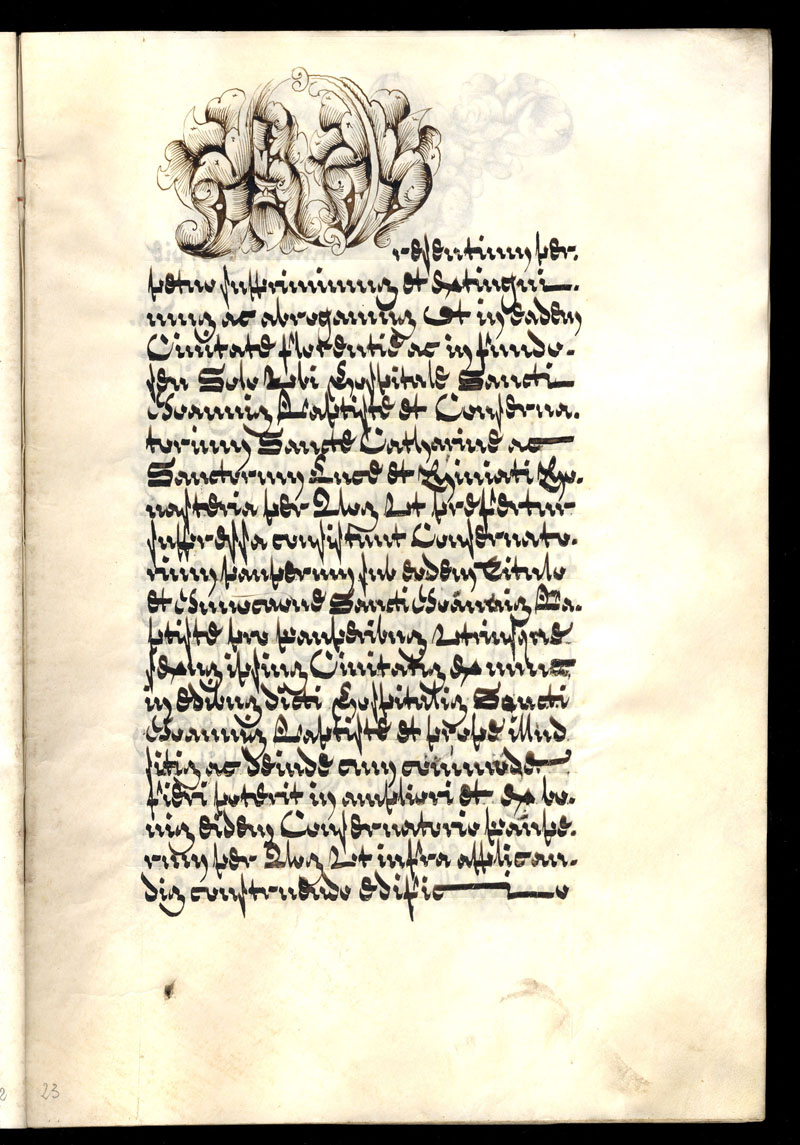 resentium per-
petuo supprimimus et extingui-
mus ac abrogamus Et in eadem
Ciuitate florentie ac in fundo-
seu Solo Ubi Hospitale Sancti
Ioannis Baptiste et Conserua-
torium Sancte Catharine ac
Sanctorum Luce et Miniati Mo-
nasteria per Nos Ut prefertur
suppressa consistunt Conseruato-
rium pauperum sub eodem Titulo
et Inuocatione Sancti Ioannis Ba-
ptiste pro pauperibus Utriusque
sexus ipsius Ciuitatis ex nunc
in edibus dicti Hospitalis Sancti
Ioannis Baptiste et prope illud
sitis ac deinde cum commode
fieri poterit in ampliori et ex bo-
nis eidem Conseruatorio paupe-
rum per Nos Ut infra applican-
dis construendo edificio
23